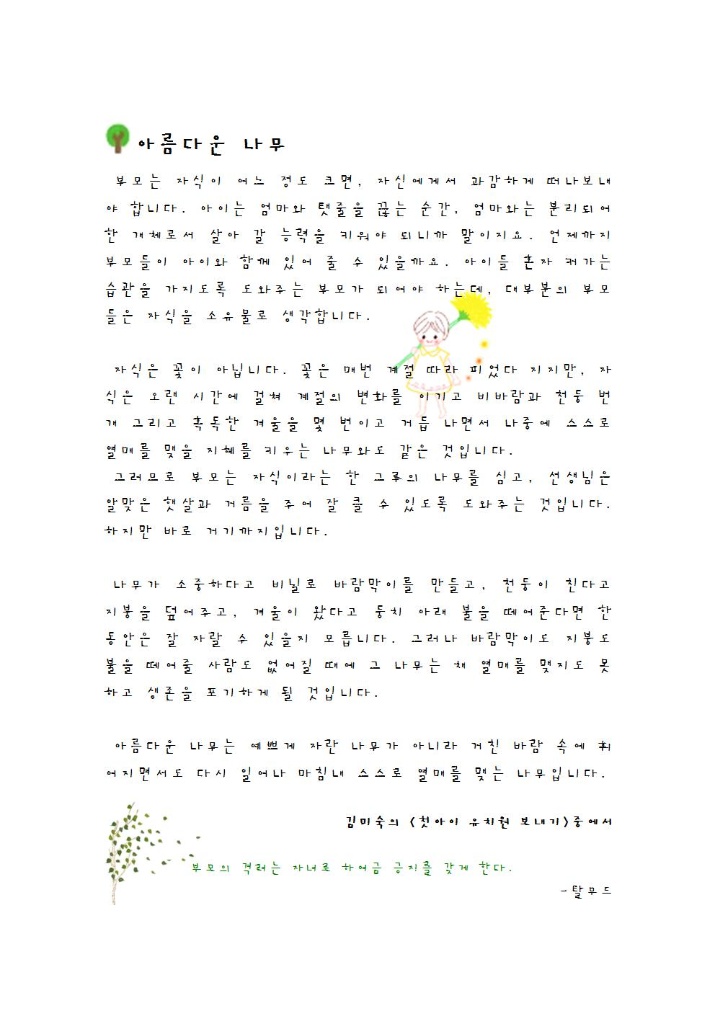 아름다운 나무
부모는 자식이 어느 정도 크면, 자신에게서 과감하게 떠나보내
야 합니다. 아이는 엄마와 탯줄을 끊는 순간, 엄마와는 분리되어
한 개체로서 살아 갈 능력을 키워야 되니까 말이지요. 언제까지
부모들이 아이와 함께 있어 줄 수 있을까요. 아이들 혼자 커가는
습관을 가지도록 도와주는 부모가 되어야 하는데, 대부분의 부모
들은 자식을 소유물로 생각합니다.
자식은 꽃이 아닙니다. 꽃은 매번 계절 따라 피었다 지지만, 자
식은 오랜 시간에 걸쳐 계절의 변화를 이기고 비바람과 천둥 번
개 그리고 혹독한 겨울을 몇 번이고 거듭 나면서 나중에 스스로
열매를 맺을 지혜를 키우는 나무와도 같은 것입니다.
그러므로 부모는 자식이라는 한 그루의 나무를 심고, 선생님은
알맞은 햇살과 거름을 주어 잘 클 수 있도록 도와주는 것입니다.
하지만 바로 거기까지입니다.
나무가 소중하다고 비닐로 바람막이를 만들고, 천둥이 친다고
지붕을 덮어주고, 겨울이 왔다고 둥치 아래 불을 떼어준다면 한
동안은 잘 자랄 수 있을지 모릅니다. 그러나 바람막이도 지붕도
불을 떼어줄 사람도 없어질 때에 그 나무는 채 열매를 맺지도 못
하고 생존을 포기하게 될 것입니다.
아름다운 나무는 예쁘게 자란 나무가 아니라 거친 바람 속에 휘
어지면서도 다시 일어나 마침내 스스로 열매를 맺는 나무입니다.
김미숙의 <첫아이 유치원 보내기>중에서
부모의 격려는 자녀로 하여금 긍지를 갖게 한다.
-탈무드